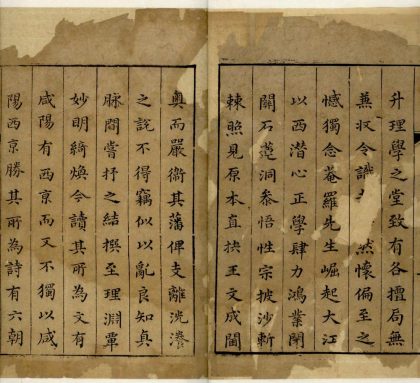 升理學之堂致有各擅局無
兼収令識然懷偏至之
憾獨念菴羅先生崛起大江
以西潜心正學肆力鴻業閉
關石蓮洞叅悟性宗披沙斬
棘照見原本直抉王文成閫
奥而嚴衛其藩俾支離洸瀁
之説不得竊似以亂良知真
脉間嘗抒之結撰至理淵覃
妙明綺煥今讀其所為文有
咸陽有西京而又不獨以咸
陽西京勝其所為詩有六朝